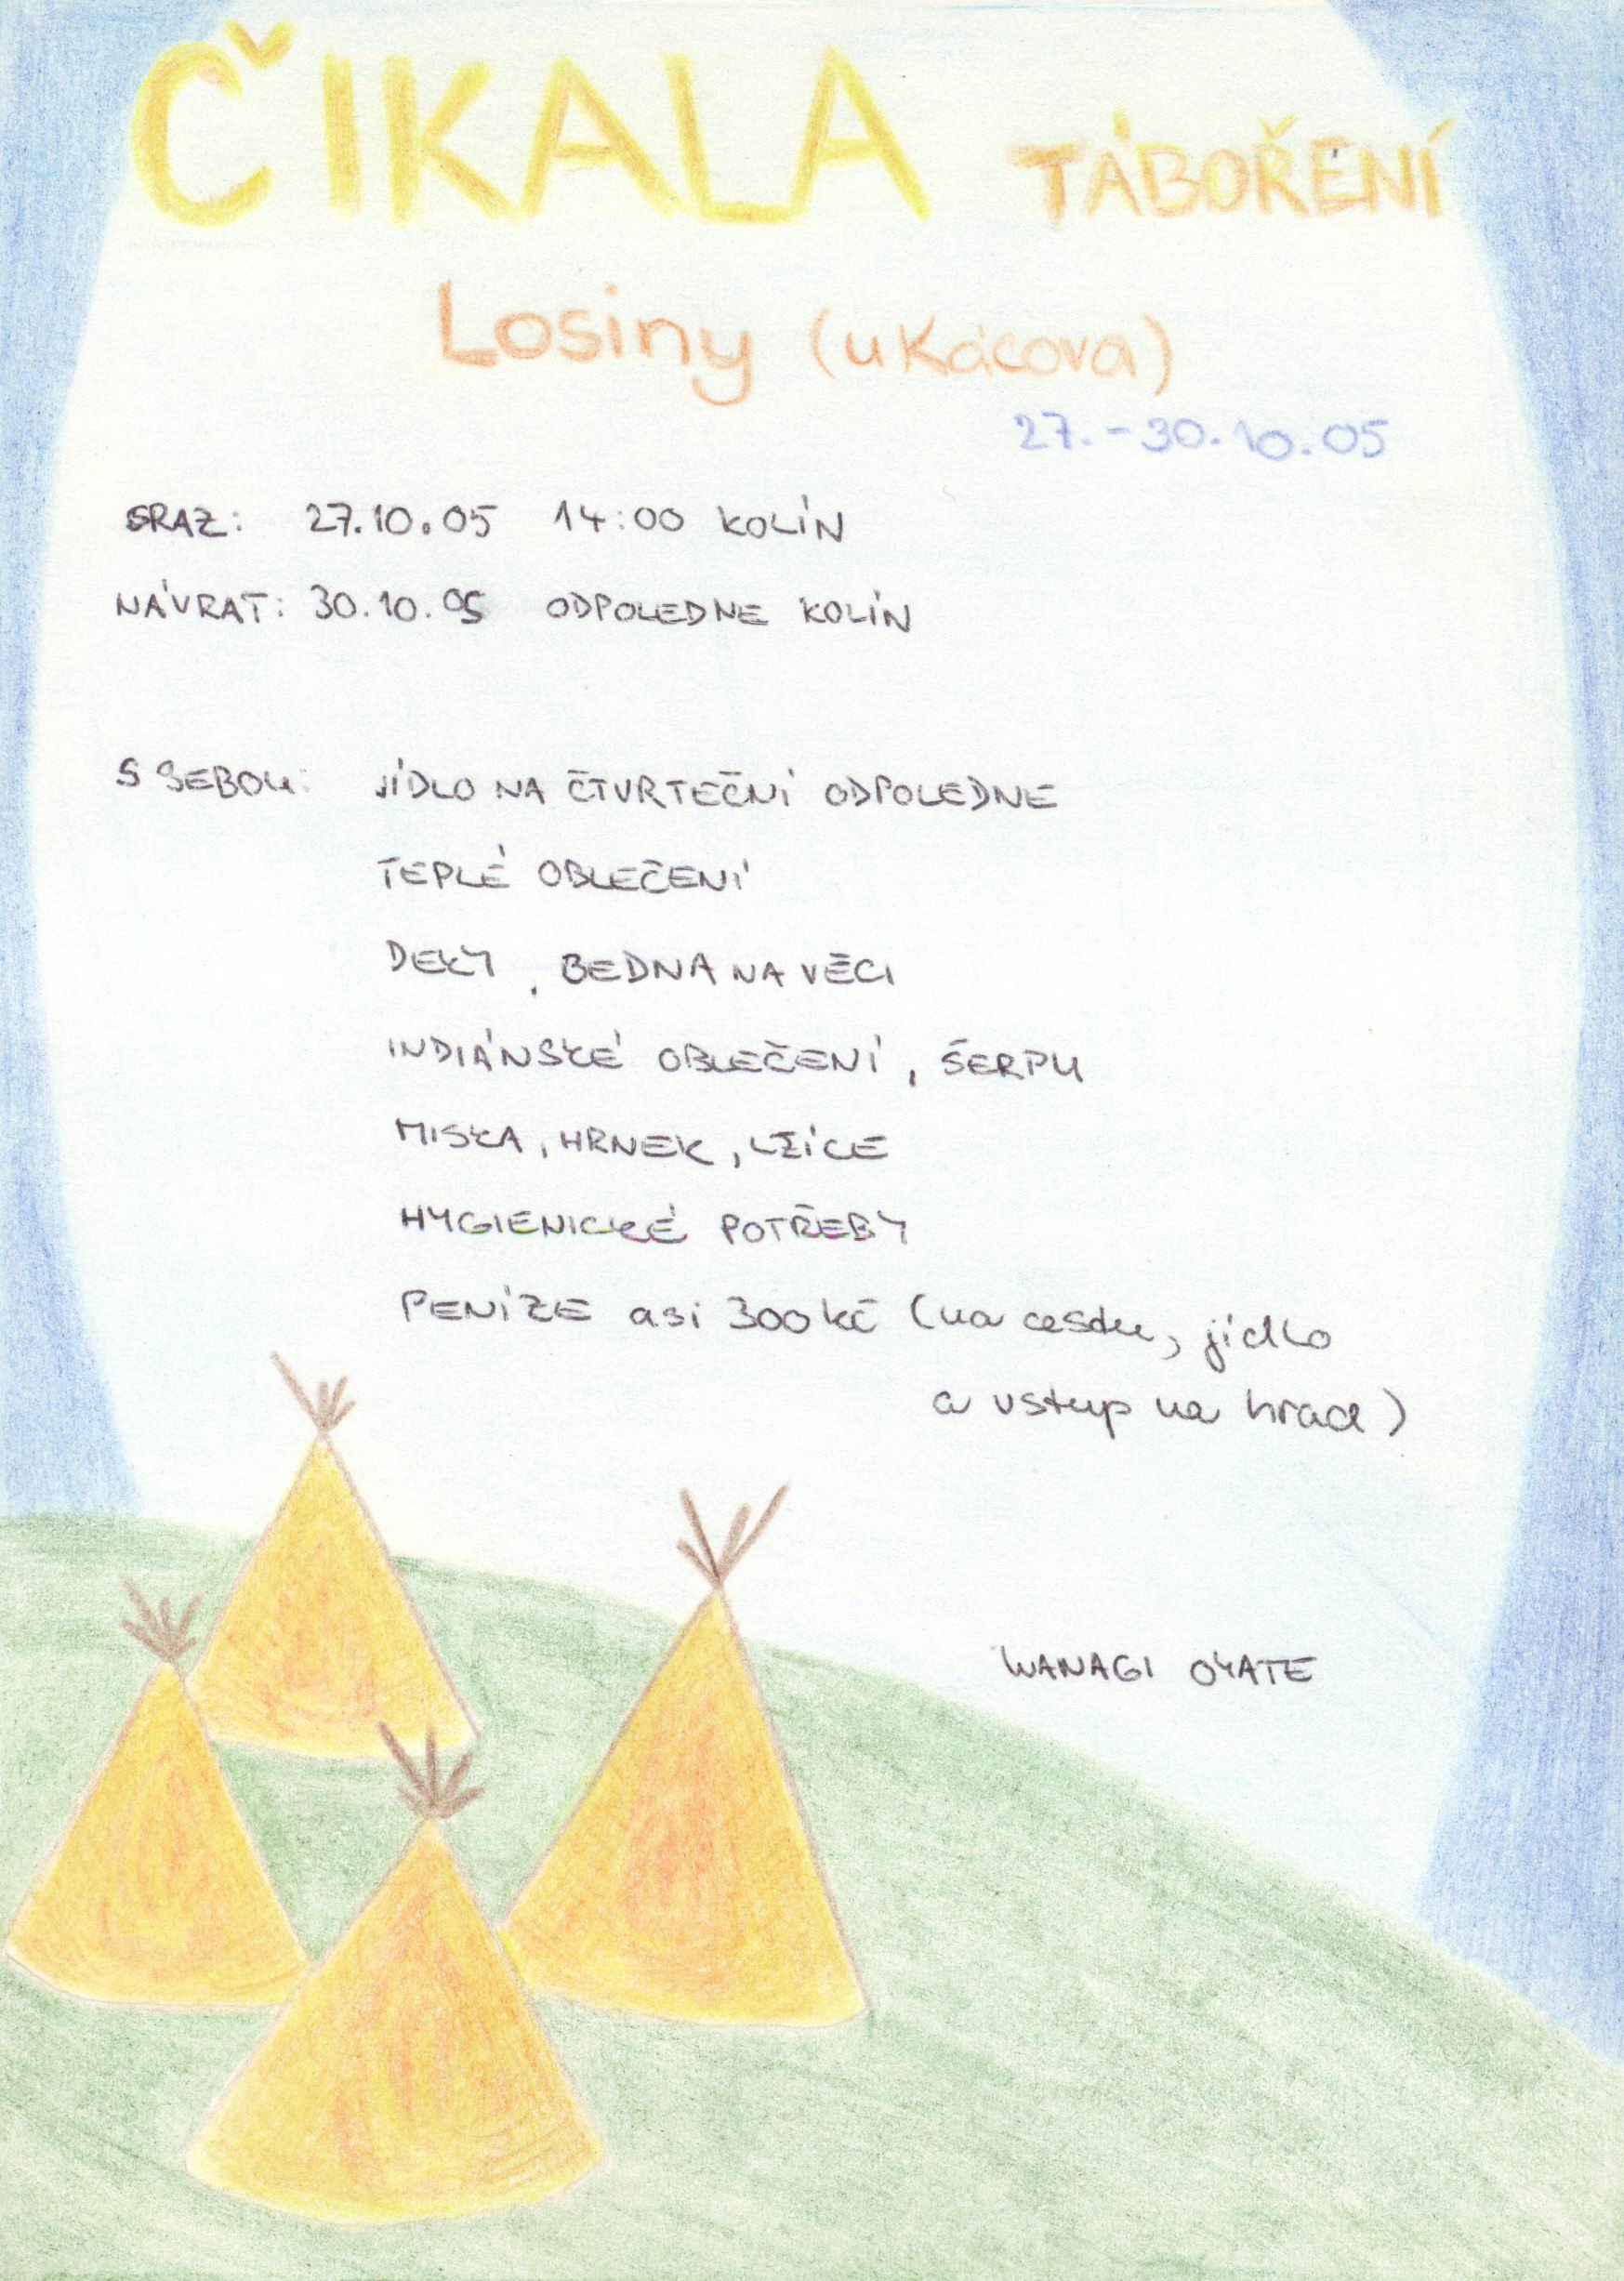 ČIKALA TÁBOŘENÍ
Losiny (u Kácova)
27.-30.10.05
SRAZ: 27.10.05 14:00 KOLÍN
NÁVRAT: 30.10.05 ODPOLEDNE KOLÍN
S SEBOU: JÍDLO NA ČTVRTEČNÍ ODPOLEDNE
TEPLÉ OBLEČENÍ
DEKY, BEDNA NA VĚCI
INDIÁNSKÉ OBLEČENÍ, ŠERPU
MISKA, HRNEK, LŽÍCE
HYGIENICKÉ POTŘEBY
PENÍZE asi 300kč (na cestu, jídlo
a vstup na hrad)
WANAGI OYATE